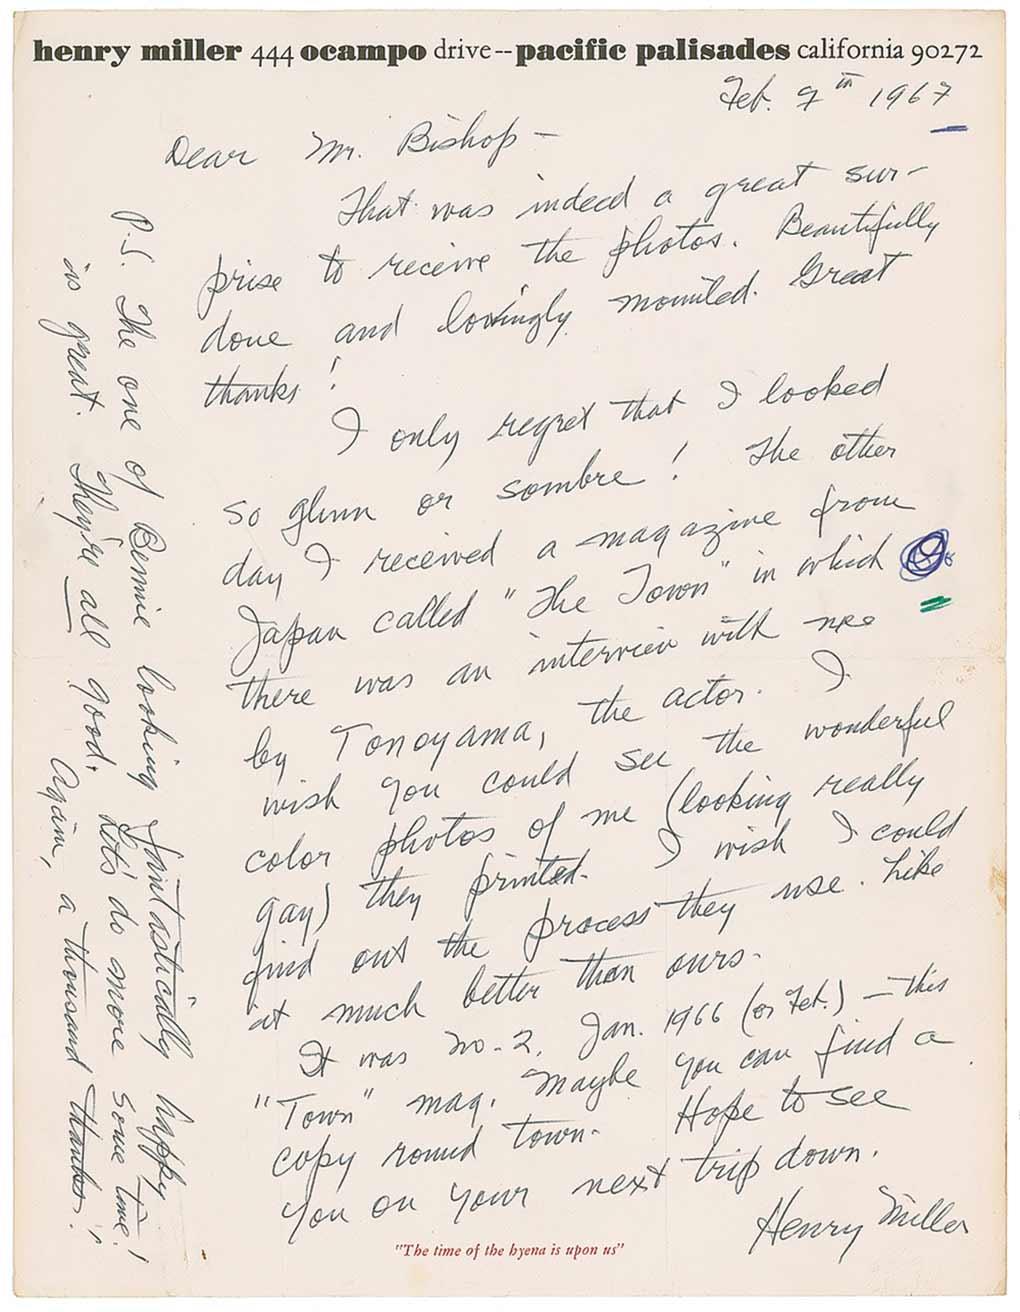 henry miller 444 ocampo drive--pacific palisades california 90272
Feb. 9th 1967
Dear Mr. Bishop –
That was indeed a great sur-
prise to receive the photos. Beautifully
done and lovingly mounted. Great
thanks!
I only regret that I looked
so glum or sombre! The other
day I received a magazine from
Japan called "The Town" in which
there was an interview with me
by Tonoyama, the actor. I
wish you could see the wonderful
color photos of me (looking really
gay) they printed. I wish I could
find out the process they use. Like
it much better than ours.
It was no. 2, Jan. 1966 (or Feb.) – this
"Town" mag. Maybe you can find a
copy round town. Hope to see
you on your next trip down.
Henry Miller
P.S. The one of Bennie looking fantastically happy
is great. They're all good. Lets' do more some time!
Again, a thousand thanks!
"The time of the hyena is upon us"